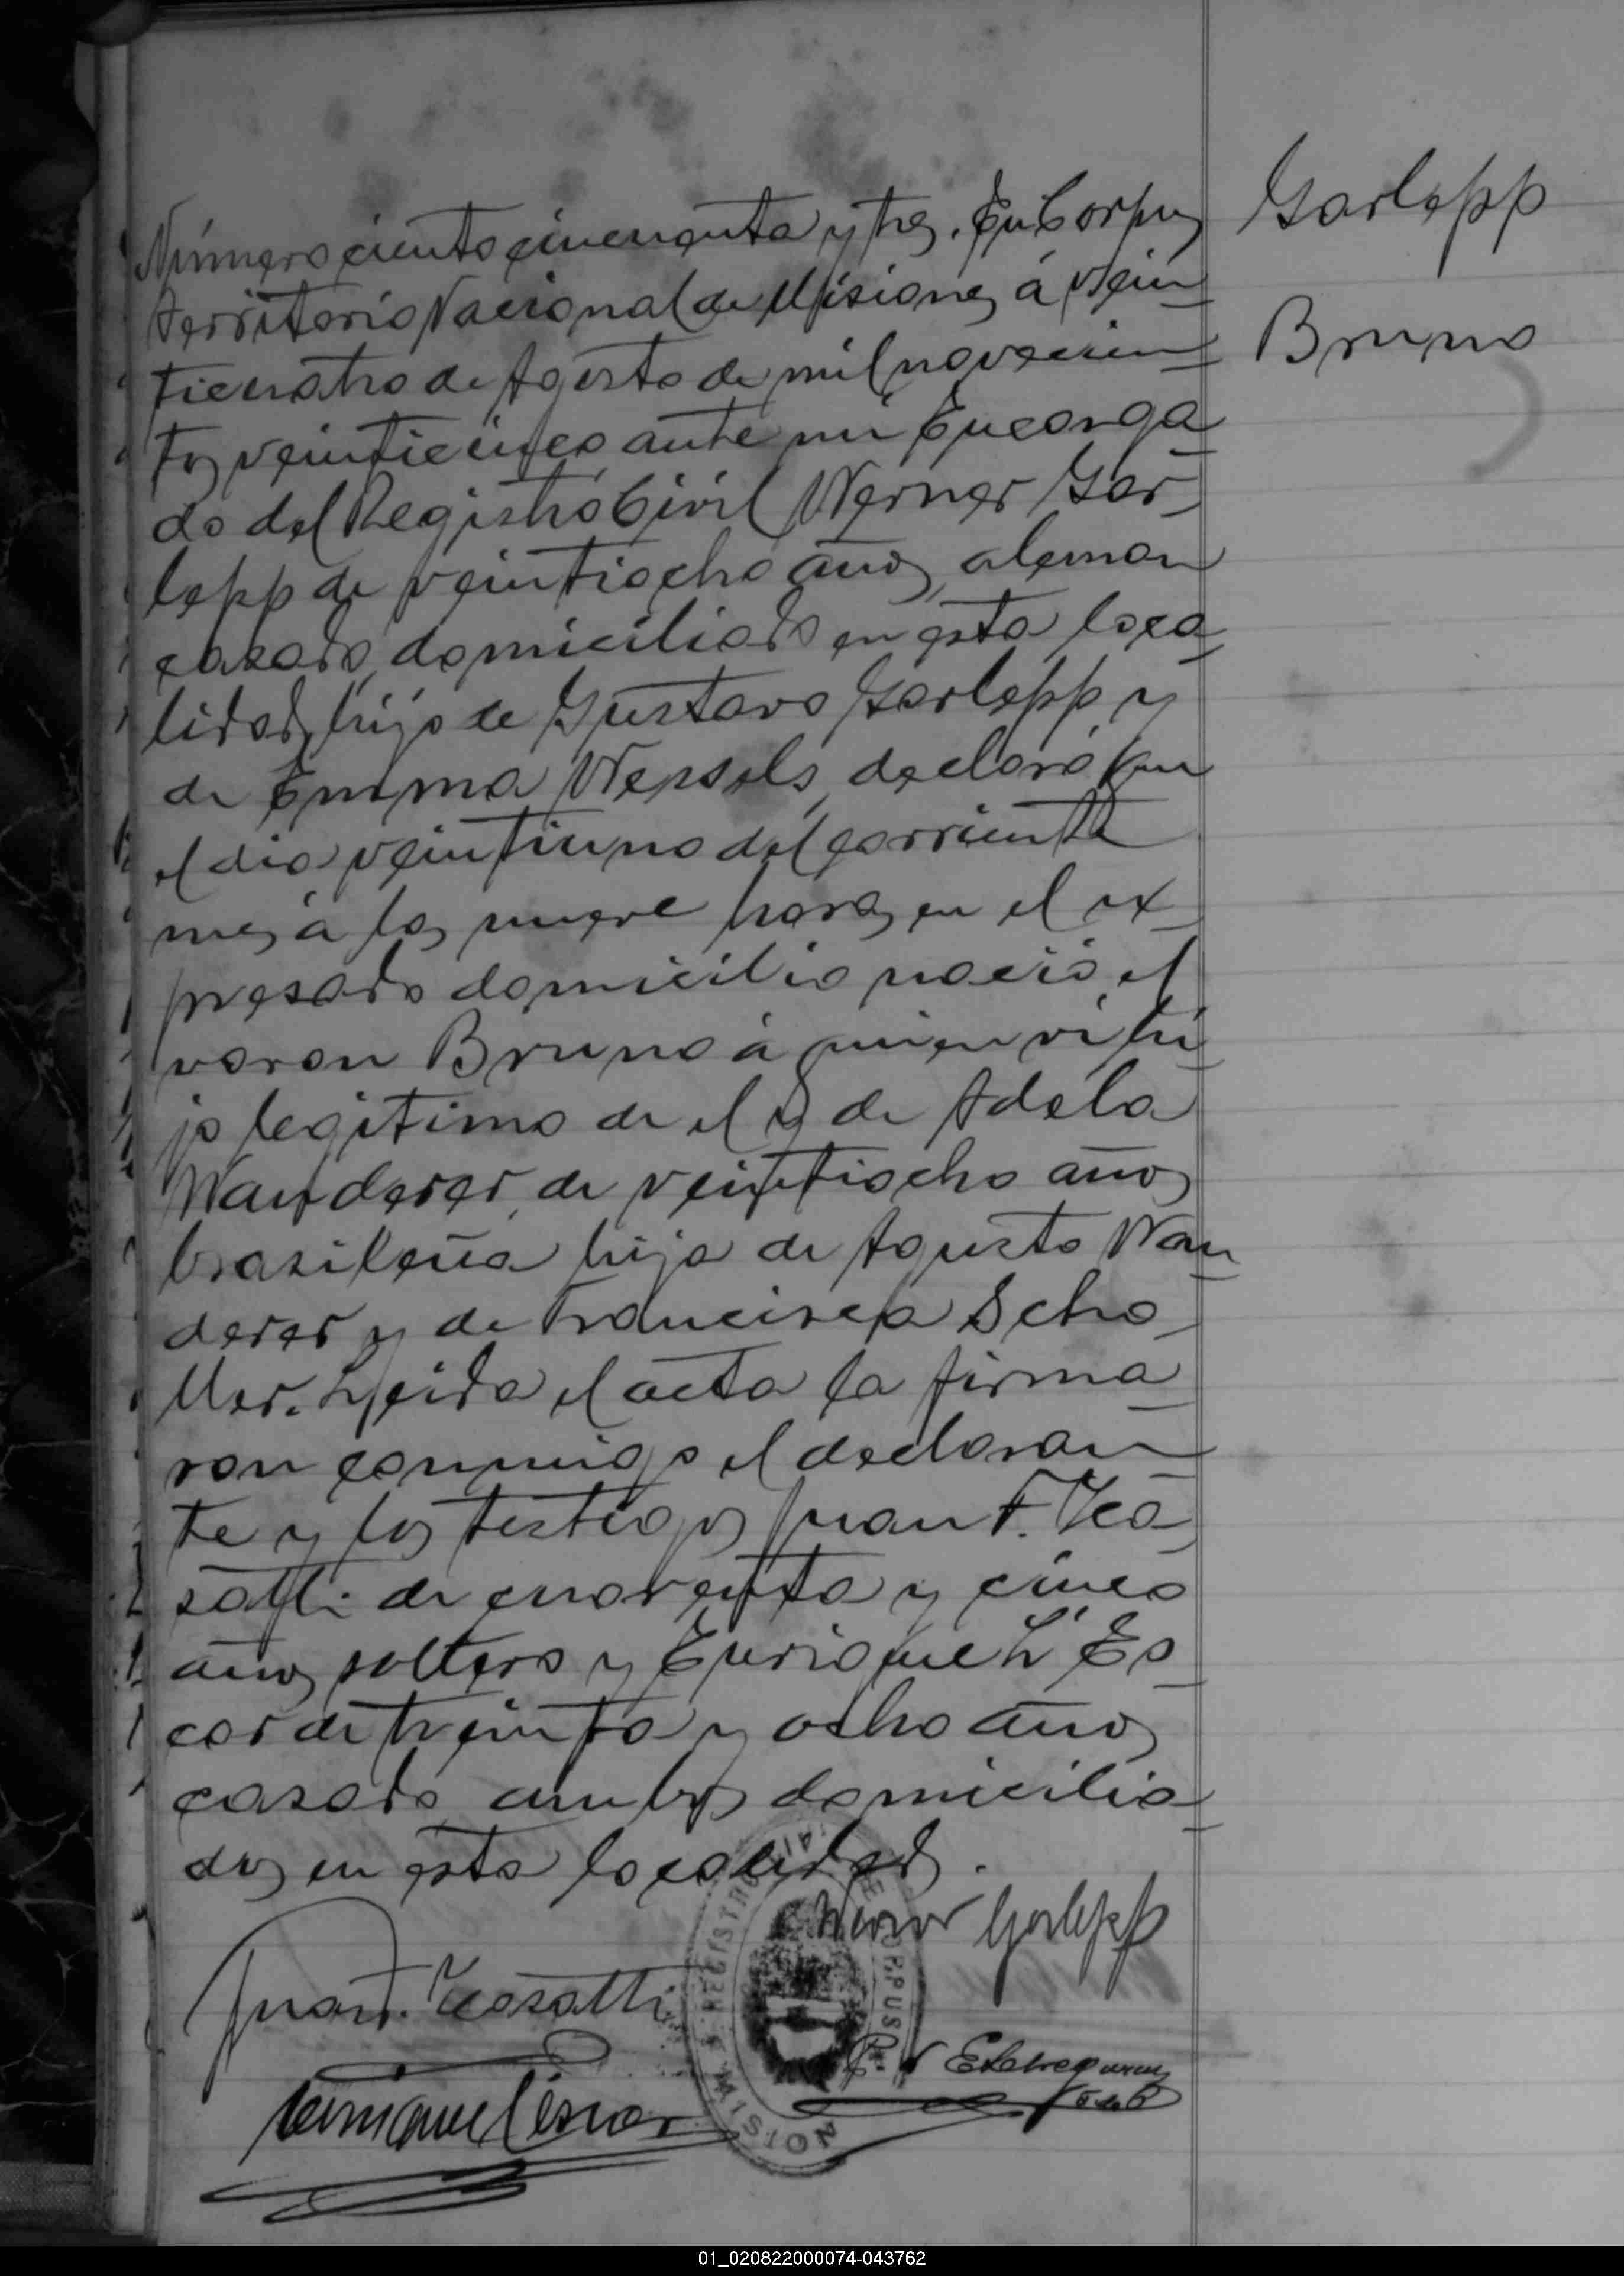 Garlepp
Bruno
Número ciento cincuenta y tres. En Corpus
Territorio Nacional de Misiones á vein
ticuatro de Agosto de mil novecien
tos veinticinco ante mi Encarga
do del Registro Civil Werner Gar
lepp de veintiocho años, aleman
casado, domiciliado en esta loca
lidad, hijo de Gustavo Garlepp y
de Emma Wessels, declaró que
el dia veintiuno del corriente
mes á las nueve horas en el ex
presado domicilio nació el
varon Bruno á quien vi hi
jo legitimo de el y de Adela
Wanderer, de veintiocho años
brasileña hija de Agusto Wan
derer y de Francisca Scho
ller. Leida el acta la firma
ron conmigo el declaran
te y los testigos Juan F.
de cuarenta y cinco
años soltero y Enrique L' Es
car de treinta y ocho años
casado ambos domicilia
dos en esta localidad.
Werner Garlepp
Juan F.
Enrique Lescar
REGISTRO CORPUS
MISIONES